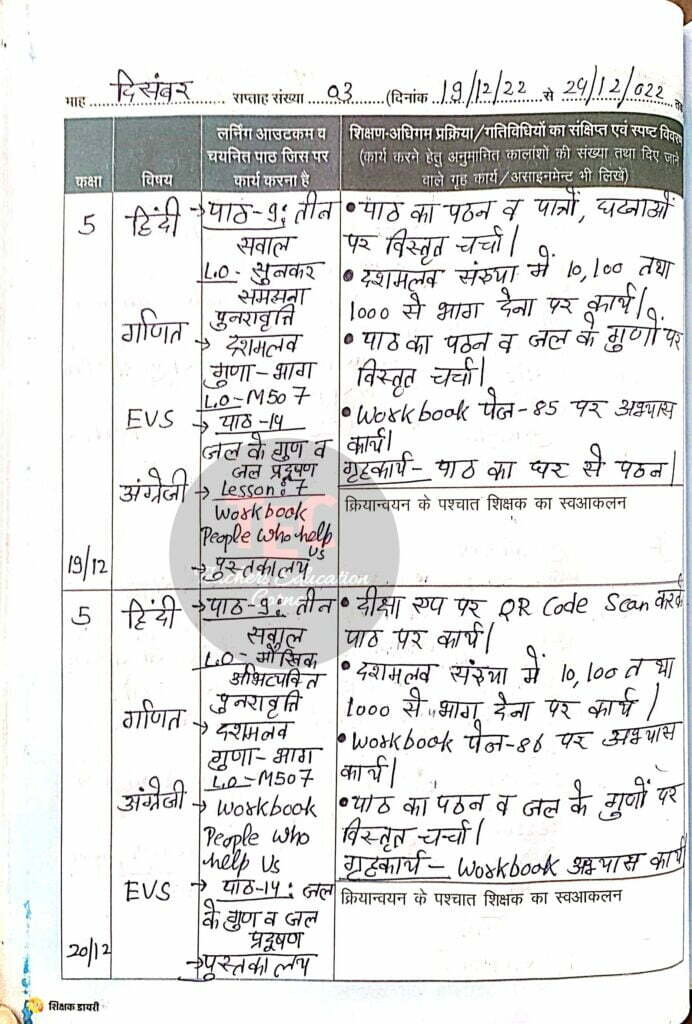 माह दिसंबर सप्ताह संख्या 03 (दिनांक 19/12/22 से 24/12/022
कक्षा
विषय
लर्निंग आउटकम व
चयनित पाठ जिस पर
कार्य करना है
शिक्षण-अधिगम प्रक्रिया/गतिविधियों का संक्षिप्त एवं स्पष्ट
(कार्य करने हेतु अनुमानित कालांशों की संख्या तथा दिए जाने
वाले गृह कार्य/असाइनमेन्ट भी लिखें)
5
हिंदी
गणित
EVS
अंग्रेजी
19/12
→ पाठ-9: तीन
सवाल
L.O- सुनकर
समझना
पुनरावृत्ति
→ दशमलव
गुणा-भाग
L.O-M507
→ पाठ-14
जल के गुण व
जल प्रदूषण
→ Lesson: 7
Workbook
People who help
us
→ पुस्तकालय
• पाठ का पठन व पात्रों, घटनाओं
पर विस्तृत चर्चा।
• दशमलव संख्या में 10,100 तथा
1000 से भाग देना पर कार्य।
• पाठ का पठन व जल के गुणों पर
विस्तृत चर्चा।
• Workbook पेज-85 पर अभ्यास
कार्य।
गृहकार्य- पाठ का घर से पठन।
क्रियान्वयन के पश्चात शिक्षक का स्वआकलन
TEC
Teachers Education
Corner
5
हिंदी
गणित
अंग्रेजी
EVS
20/12
→ पाठ-9: तीन
सवाल
L.O- मौखिक
अभिव्यक्ति
पुनरावृत्ति
→ दशमलव
गुणा-भाग
L.O-M507
→ Workbook
People Who
help Us
→ पाठ-14: जल
के गुण व जल
प्रदूषण
→ पुस्तकालय
• दीक्षा एप पर QR Code Scan करके
पाठ पर कार्य।
• दशमलव संख्या में 10,100 तथा
1000 से भाग देना पर कार्य।
• Workbook पेज-86 पर अभ्यास
कार्य।
• पाठ का पठन व जल के गुणों पर
विस्तृत चर्चा।
गृहकार्य- Workbook अभ्यास कार्य
क्रियान्वयन के पश्चात शिक्षक का स्वआकलन
शिक्षक डायरी